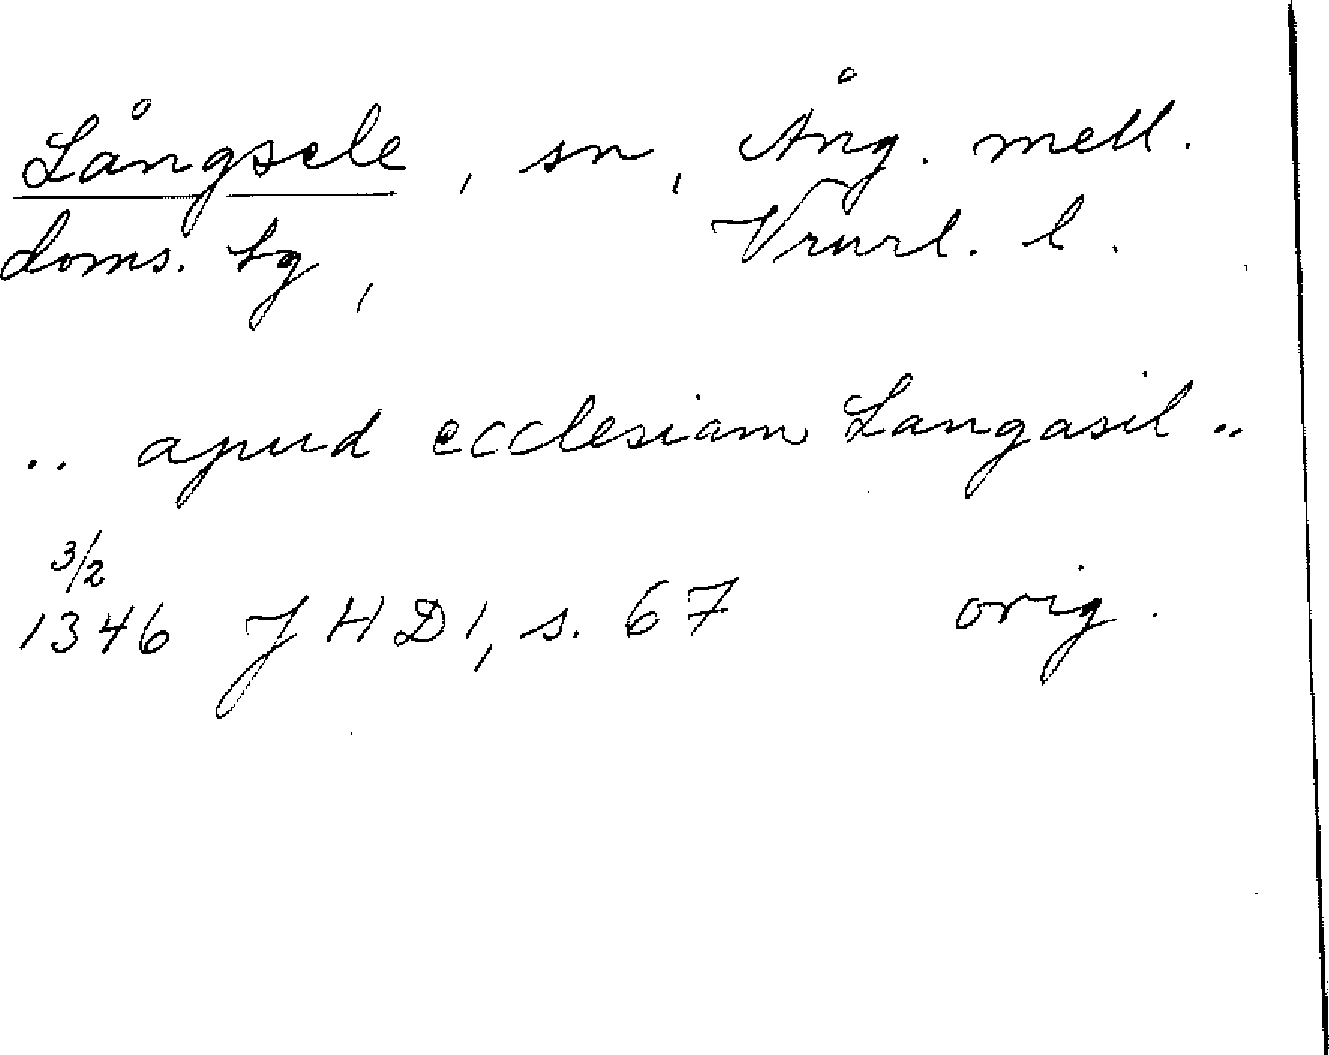 Långsele, sn, Ång. mell.
doms. tg, Vnrl. l.
.. apud ecclesiam Langasil ..
3/2
1346 JHD1, s. 67 orig.